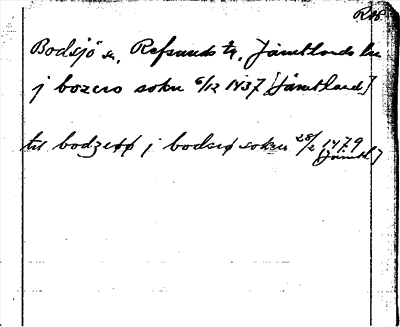 Bodsjö sn, Refsunds tg, Jämtlands län
j bozero sokn 6/12 1437 [Jämtland]
til bodzeøø j bodsiø sokn 28/2 1479
[Jämtl]